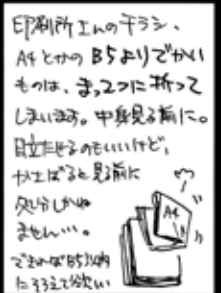 印刷所さんのチラシ、
A4とかの B5よりでかい
ものは、まっ2つに折って
しまいます。中身見る前に。
目立たせるのもいいけど、
かさばると見る前に
処分しかね
ません…。
できればB5以内
にそろえて欲しい
A4